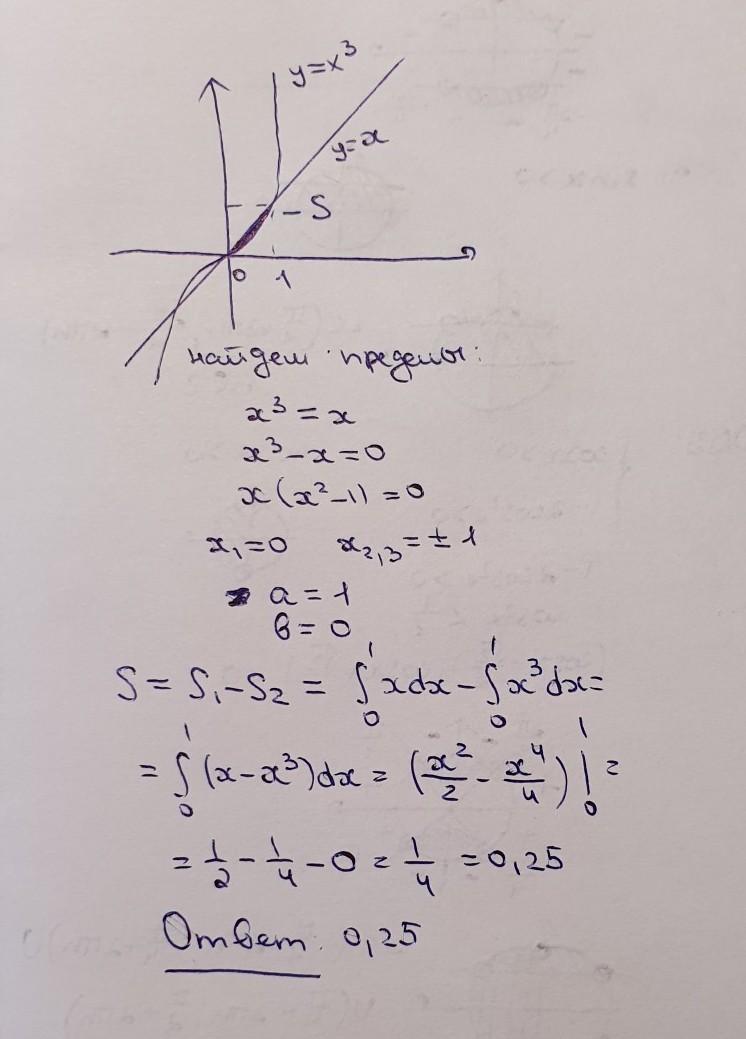 y=x³
y=x
S
0 1
найдем пределы:
x³ = x
x³ – x = 0
x(x² – 1) = 0
x₁ = 0 x₂,₃ = ± 1
a = 1
b = 0
S = S₁ – S₂ = ∫₀¹ xdx – ∫₀¹ x³dx =
= ∫₀¹ (x – x³)dx = (x²/2 – x⁴/4) |₀¹ =
= 1/2 – 1/4 – 0 = 1/4 = 0,25
Ответ: 0,25